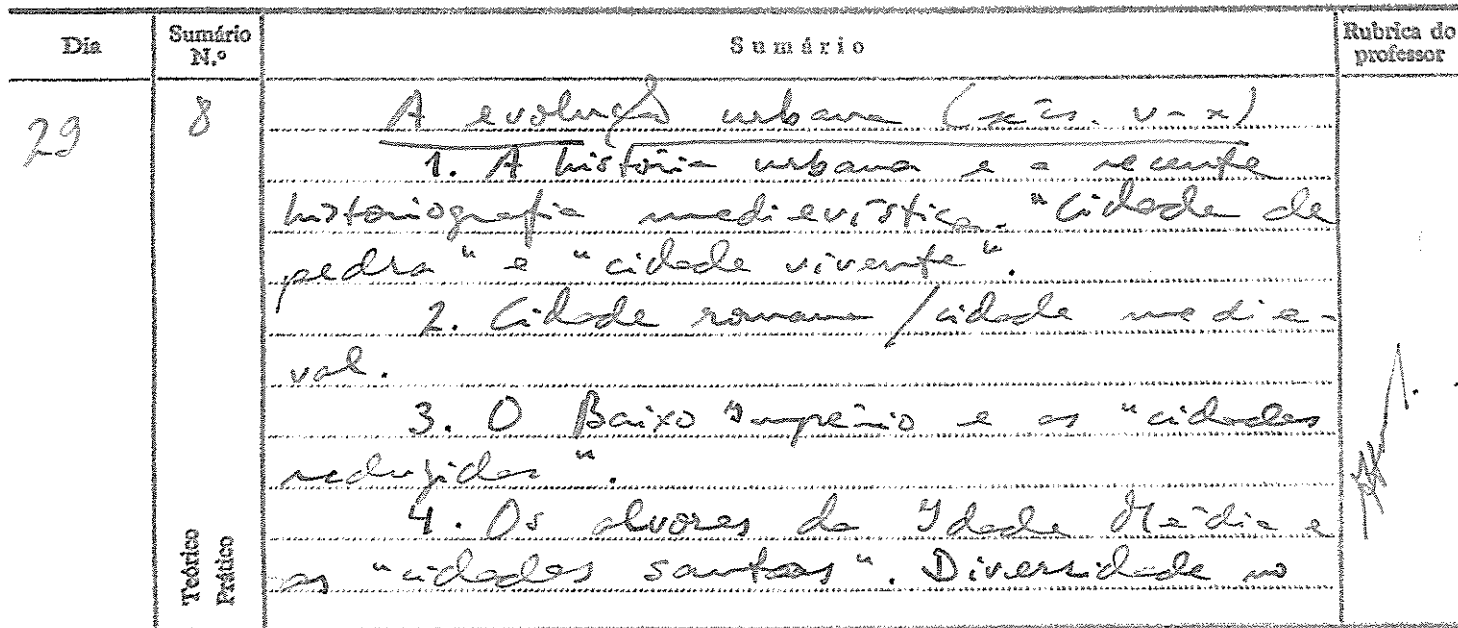 Dia
Sumário N.º
Sumário
Rubrica do professor
29
8
A evolução urbana (sécs. V-X)
1. A história urbana e a recente
historiografia medievística. "Cidade de
pedra" e "cidade vivente".
2. Cidade romana / cidade medie-
val.
3. O Baixo Império e as "cidades
reduzidas".
4. Os alvores da Idade Média e
as "cidades santas". Diversidade no
Teórico
Prático